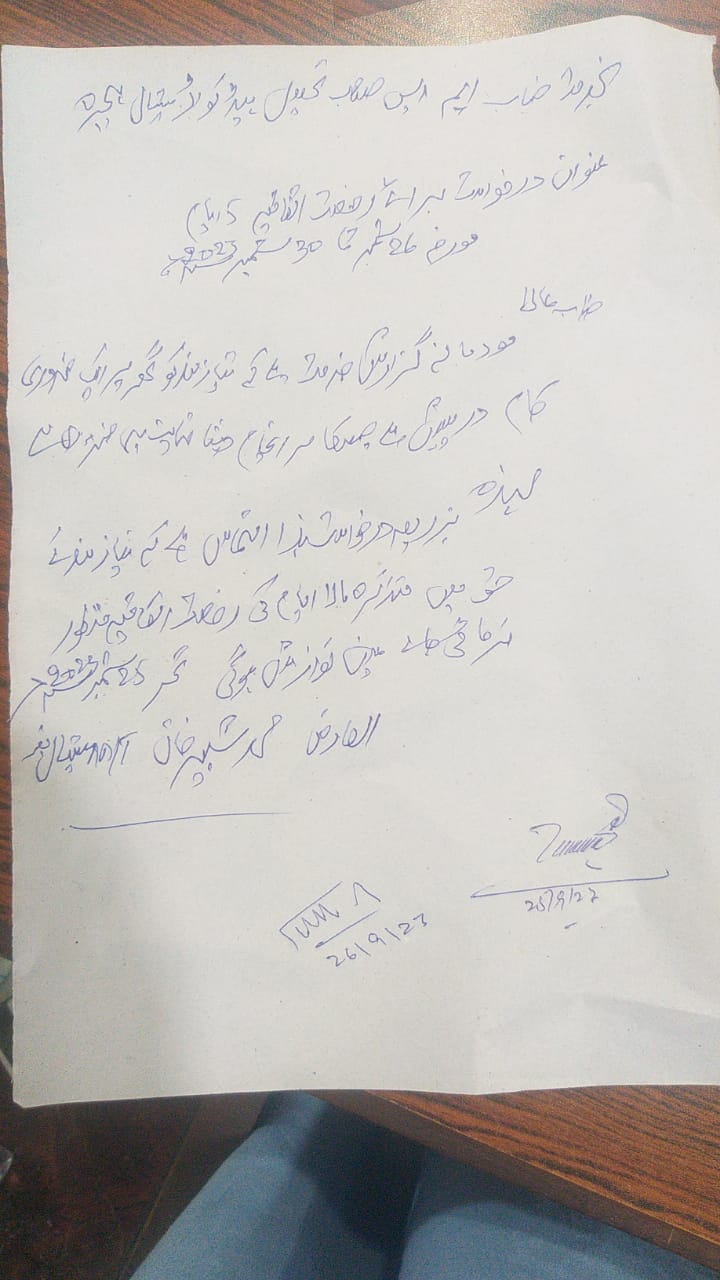 بخدمت جناب ایم ایس صاحب تحصیل ہیڈ کوارٹر ہسپتال ہجیرہ
عنوان درخواست برائے رخصت اتفاقیہ 5 ایام
مورخہ 26 ستمبر تا 30 ستمبر 2023
جناب عالی
مودبانہ گزارش خدمت ہے کہ نیازمند کو گھر پر ایک ضروری
کام درپیش ہے جسکا سر انجام دینا نہایت ہی ضروری ہے
لہذا بذریعہ درخواست ہذا التماس ہے کہ نیازمند کے
حق میں متذکرہ بالا ایام کی رخصت اتفاقیہ منظور
فرمائی جائے عین نوازش ہوگی 25 ستمبر 2023
العارض محمد شبیر خان ہسپتال
25/9/23
26/9/23